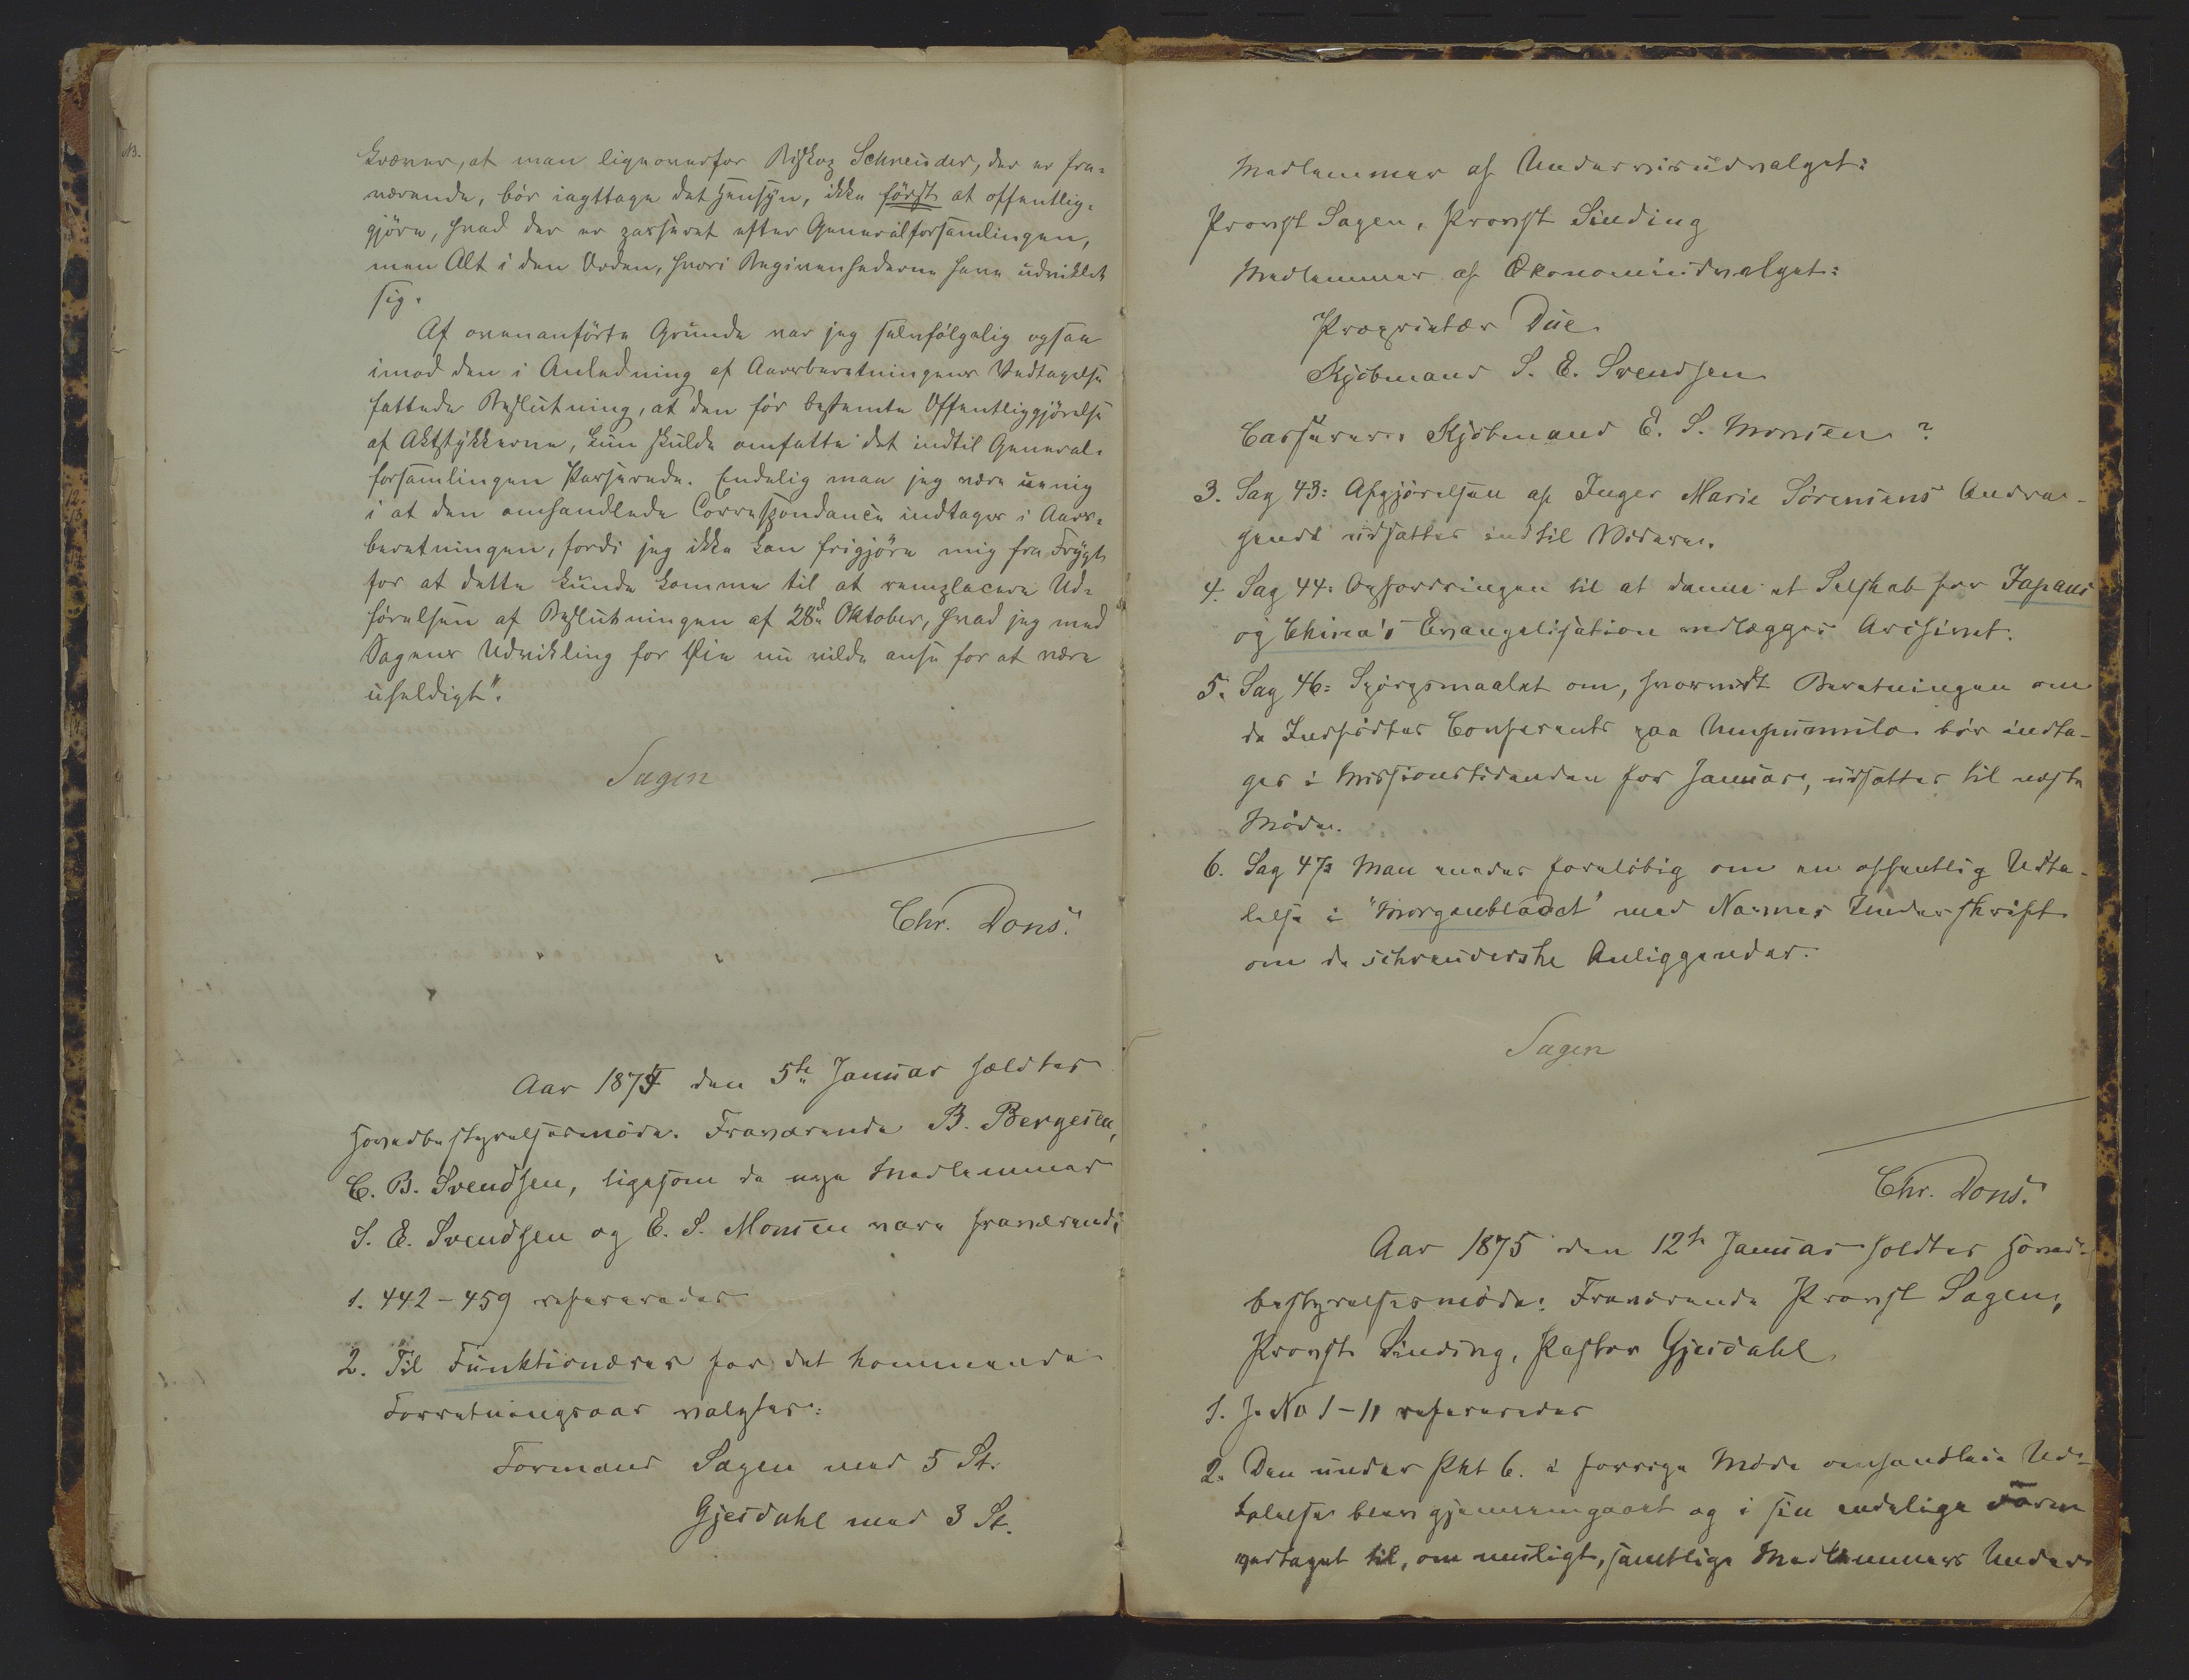 NB.
kræver, at man ligeoverfor Biskop Schreuder, der er fra-
værende, bør iagttage det Hensyn, ikke først at offentlig-
gjöre, hvad der er passeret efter Generalforsamlingen,
men Alt i den Orden, hvori Begivenhederne have udviklet
sig.
Af ovenanførte Grunde var jeg selvfölgelig ogsaa
imod den i Anledning af Aarsberetningens Vedtagelse
fattede Beslutning, at den för bestemte Offentliggjörelse
af Aktstykkerne, kun skulde omfatte det indtil General-
forsamlingen Passerede. Endelig maa jeg være uenig
i at den omhandlede Correspondance indtages i Aars-
beretningen, fordi jeg ikke kan frigjöre mig fra Frygt
for at dette kunde komme til at remplacere Ud-
förelsen af Beslutningen af 28de Oktober, hvad jeg med
Sagens Udvikling for Øie nu vilde anse for at være
uheldigt".
Sagen
Chr. Dons.
Aar 1875 den 5te Januar holdtes
Hovedbestyrelsesmöde. Fraværende B. Bergesen,
C. B. Svendsen, ligesom de nye Medlemmer
S. E. Svendsen og E. S. Monsen vare fraværende
1. 442-459 refereredes
2. Til Funktionærer for det kommende
Forretningsaar valgtes:
Formand Sagen med 5 St.
Gjesdahl med 3 St.
Medlemmer af Undervisudvalget:
Provst Sagen, Provst Sinding
Medlemmer af Økonomiudvalget:
Proprietær Due
Kjöbmand S. E. Svendsen
Casserer: Kjöbmand E. S. Monsen ?
3. Sag 43: Afgjörelsen af Inger Marie Sörensens Andra-
gende udsattes indtil Videre.
4. Sag 44: Opfordringen til at danne et Selskab for Japans
og China's Evangelisation vedlægges Archivet.
5. Sag 46: Spörgsmaalet om, hvorvidt Beretningen om
de Indfödtes Conferents paa Umpumulo bör indta-
ges i Missionstidenden for Januar, udsættes til næste
Möde.
6. Sag 47: Man enedes forelöbig om en offentlig Udta-
lelse i "Morgenbladet" med Navnes Underskrift
om de schreuderske Anliggender.
Sagen
Chr. Dons.
Aar 1875 den 12te Januar holdtes Hoved-
bestyrelsesmöde: Fraværende Provst Sagen,
Provst Sinding, Pastor Gjesdahl
1. J. No 1-11 refereredes
2. Den under Pkt 6. i forrige Möde omhandlede Ud-
talelse blev gjennemgaaet og i sin endelige Form
vedtaget til, om muligt, samtlige Medlemmers Under-